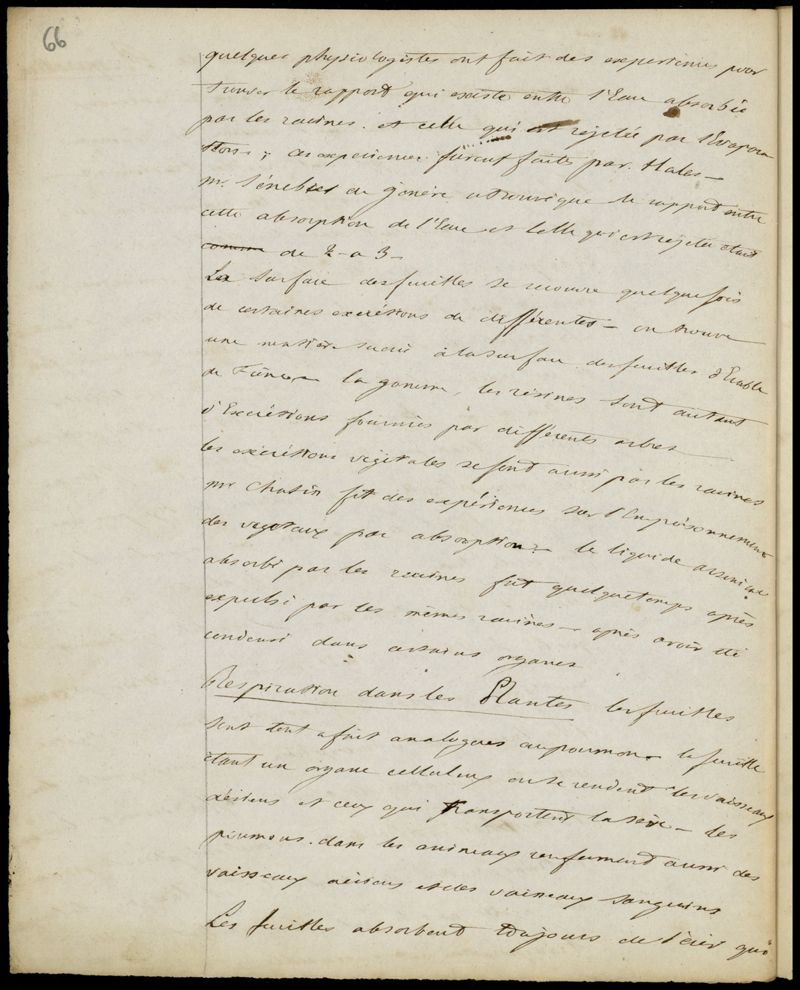 66
quelques physiologistes ont fait des experiences pour
trouver le rapport qui existe entre l'Eau absorbée
par les racines. et celle qui est rejetée par l'Evapora
tion ; ces experiences furent faites par. Hales —
mr. Sénebier de genève a trouvé que le rapport entre
cette absorption de l'Eau et celle qui est rejetée étant
comme de 2 - a 3 -
La surface des feuilles se recouvre quelques fois
de certaines excrétions de différentes — on trouve
une matière sucrée à la surface des feuilles d'Erable
de la gomme, les résines sont autant
d'Excrétions fournies par différents arbres
les excrétions végétales se font aussi par les racines
mr Chatin fit des expériences sur l'Empoisonnement
des végétaux par absorption - le liquide arsenical
absorbé par les racines fut quelque temps après
expulsé par les mêmes racines — après avoir été
condensé dans certains organes
Respiration dans les Plantes les feuilles
sont tout a fait analogues au poumon la feuille
étant un organe celluleux ou se rendent les vaisseaux
aériens et ceux qui transportent la sève — les
poumons. dans les animaux renferment aussi des
vaisseaux aériens et des vaisseaux sanguins
Les feuilles absorbent toujours de l'air qui